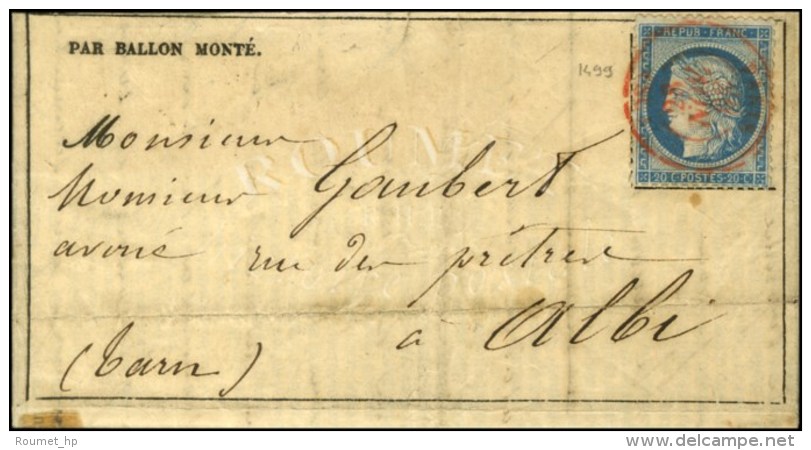 PAR BALLON MONTÉ.
1499
REPUB. FRANC.
20 C. POSTES. 20 C.
ROUMET
Monsieur
Monsieur Gaubert
avoué rue des prêtres
à Albi
(Tarn)
Roumet_hp
delcampe.net